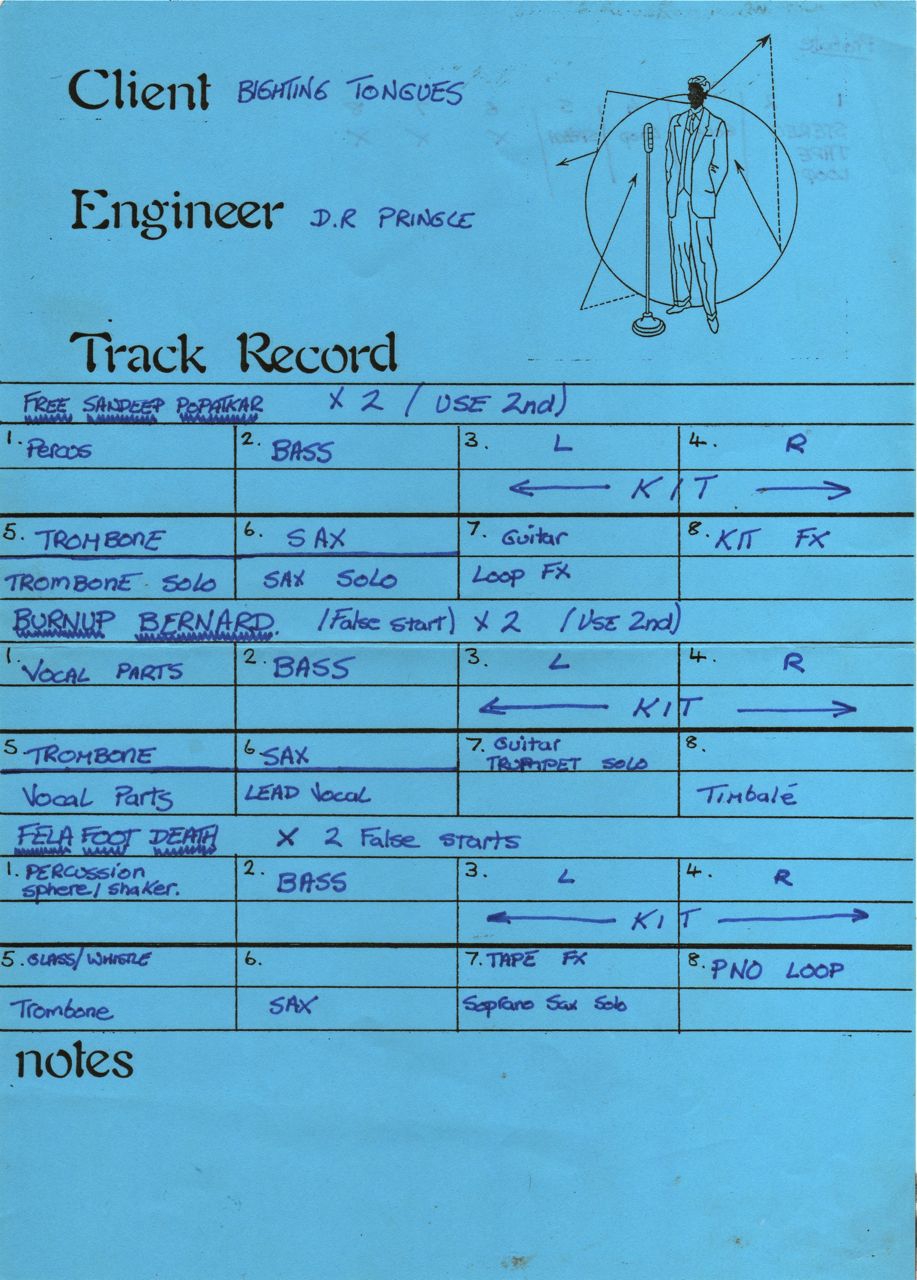 Client BIGHTING TONGUES
Engineer D.R PRINGLE
Track Record
FREE SANDEEP POPATKAR X 2 / USE 2nd)
1. Percus 2. BASS 3. L 4. R
← KIT →
5. TROMBONE 6. SAX 7. Guitar 8. KIT FX
TROMBONE SOLO SAX SOLO LOOP FX
BURNUP BERNARD. (False start) X 2 (USE 2nd)
1. VOCAL PARTS 2. BASS 3. L 4. R
← KIT →
5 TROMBONE 6. SAX 7. Guitar 8.
TRUMPET SOLO
Vocal Parts LEAD Vocal Timbalé
FELA FOOT DEATH X 2 False starts
1. PERCUSSION 2. BASS 3. L 4. R
sphere/shaker.
← KIT →
5. GLASS/WHISTLE 6. 7. TAPE FX 8. PNO LOOP
Trombone SAX Soprano Sax Solo
notes